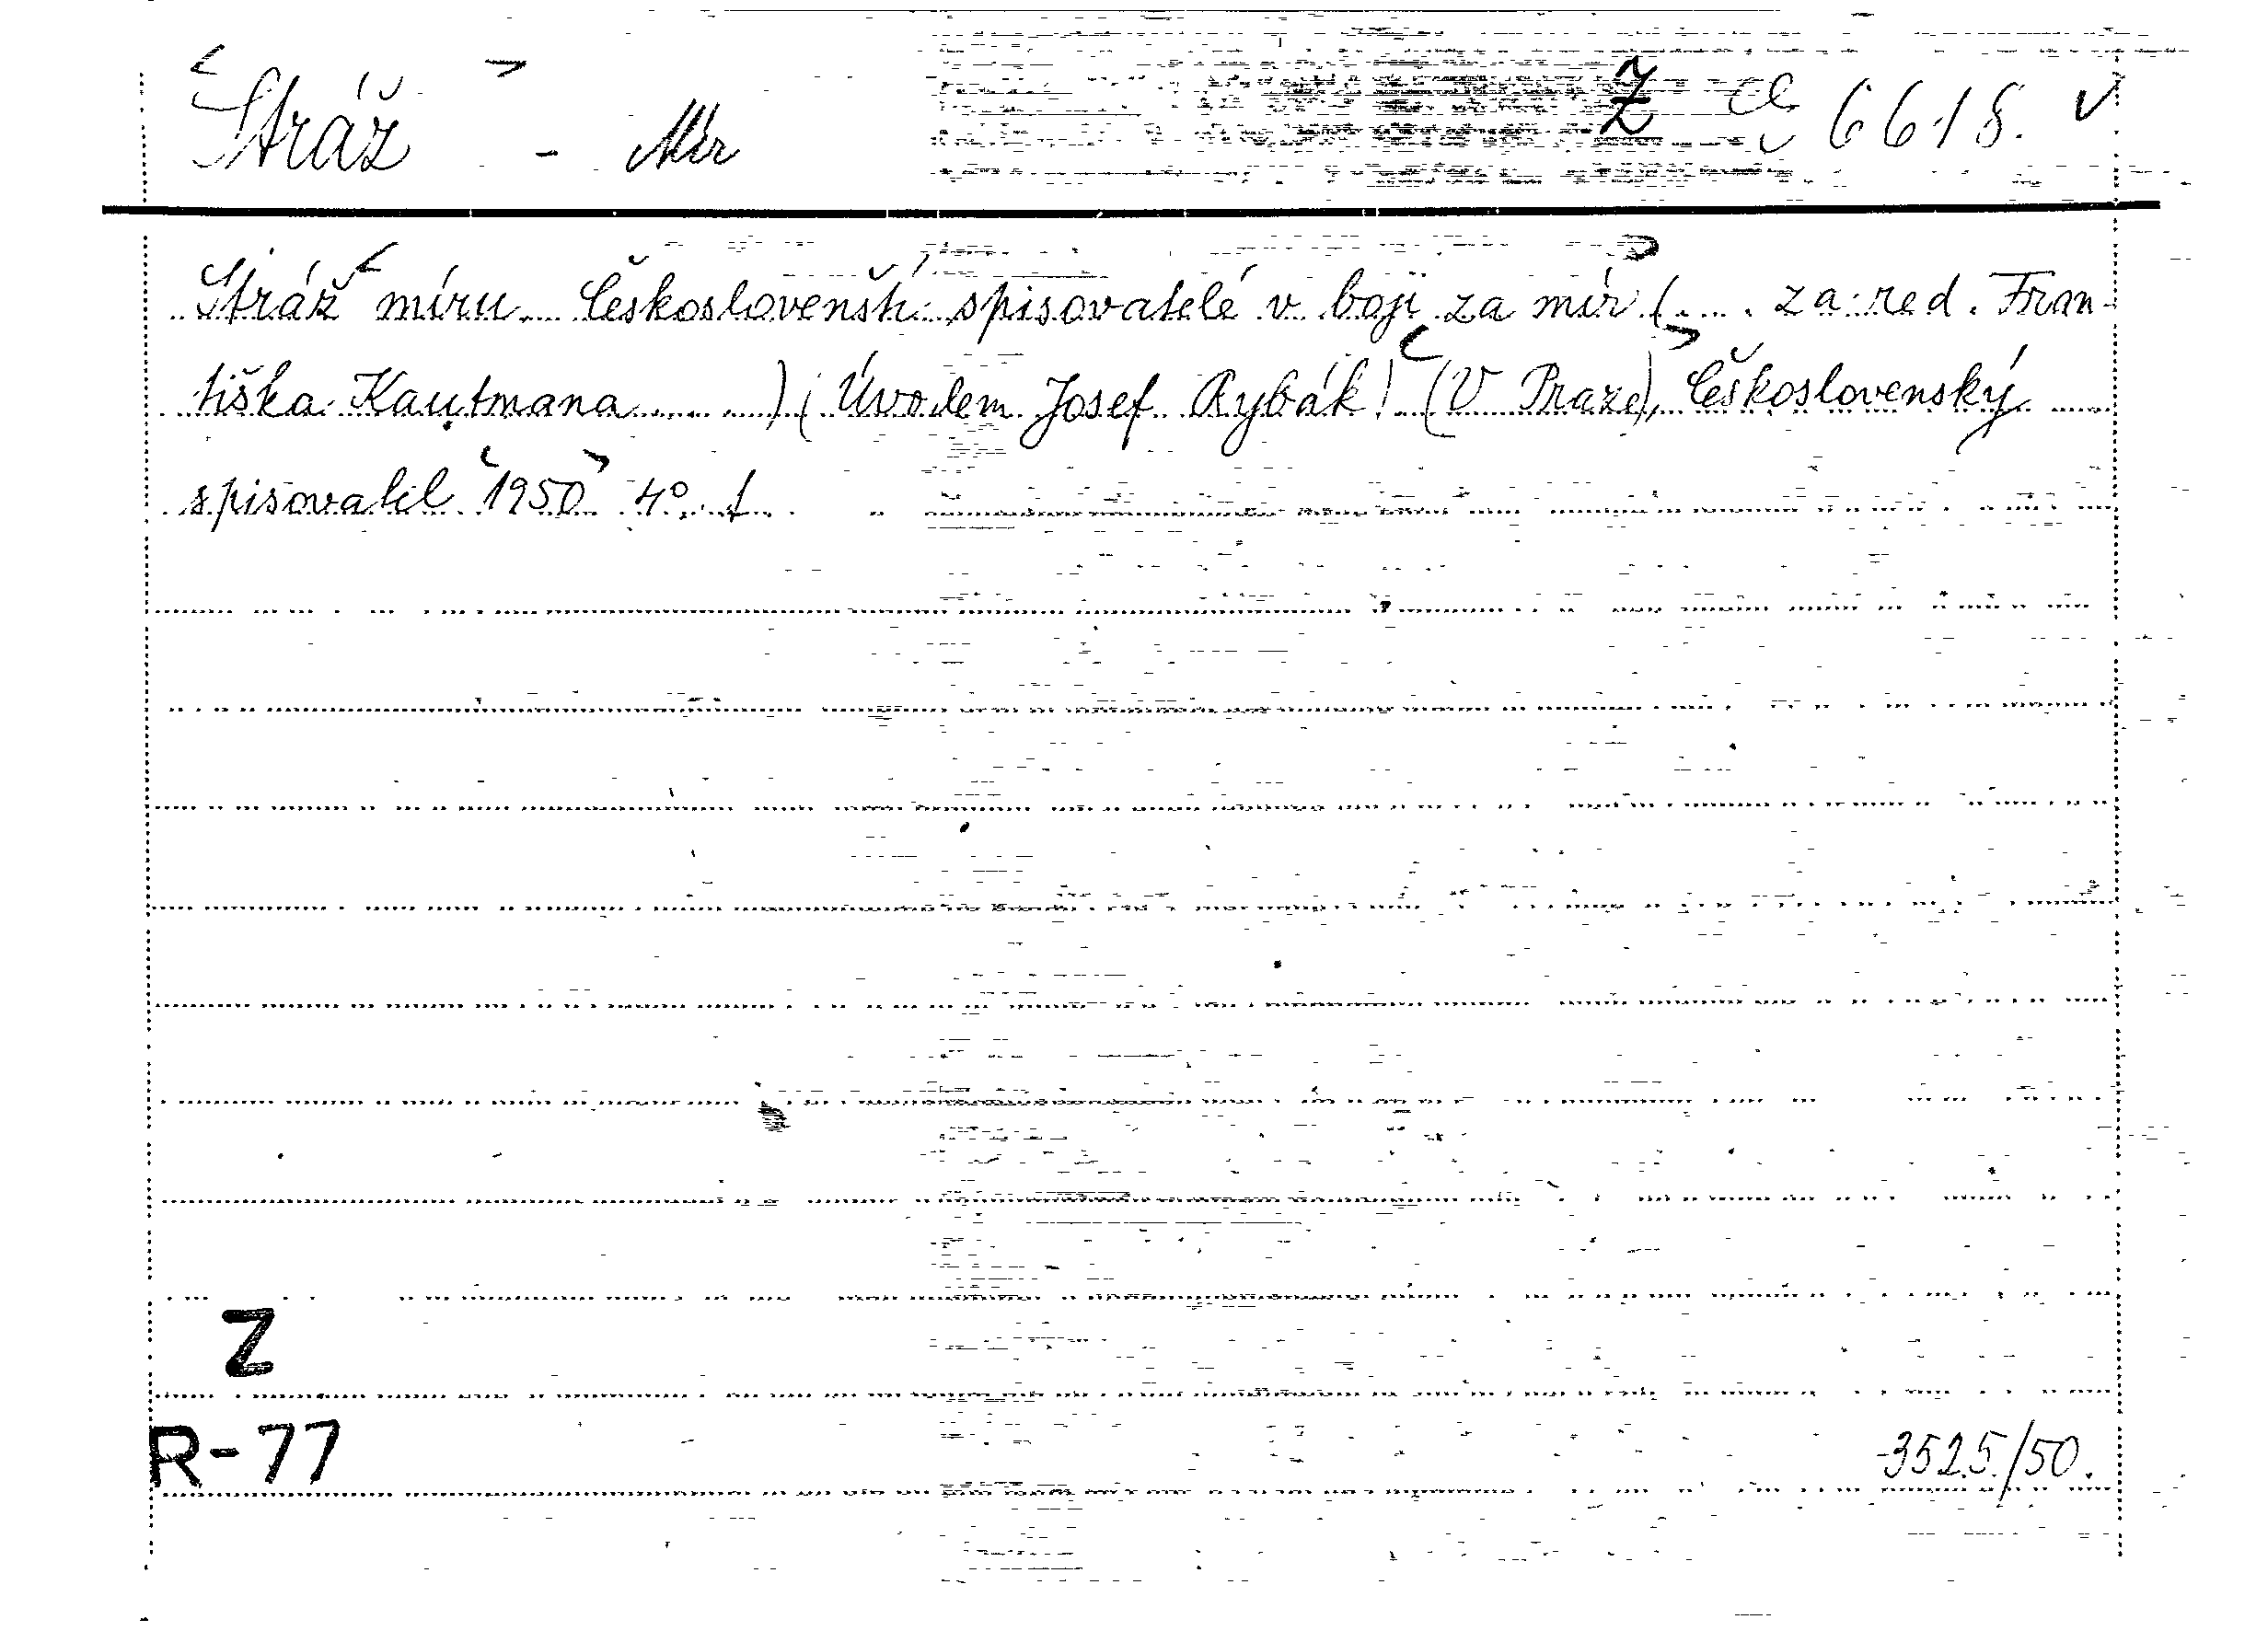 Stráž - Mír Ž Č 6618.
Stráž míru. Českoslovenští spisovatelé v boji za mír (... za red. Fran-
tiška Kautmana ....) (Úvodem Josef Rybák) (V Praze), Československý
spisovatel 1950 4°. 1
Z
R-77
3525/50.